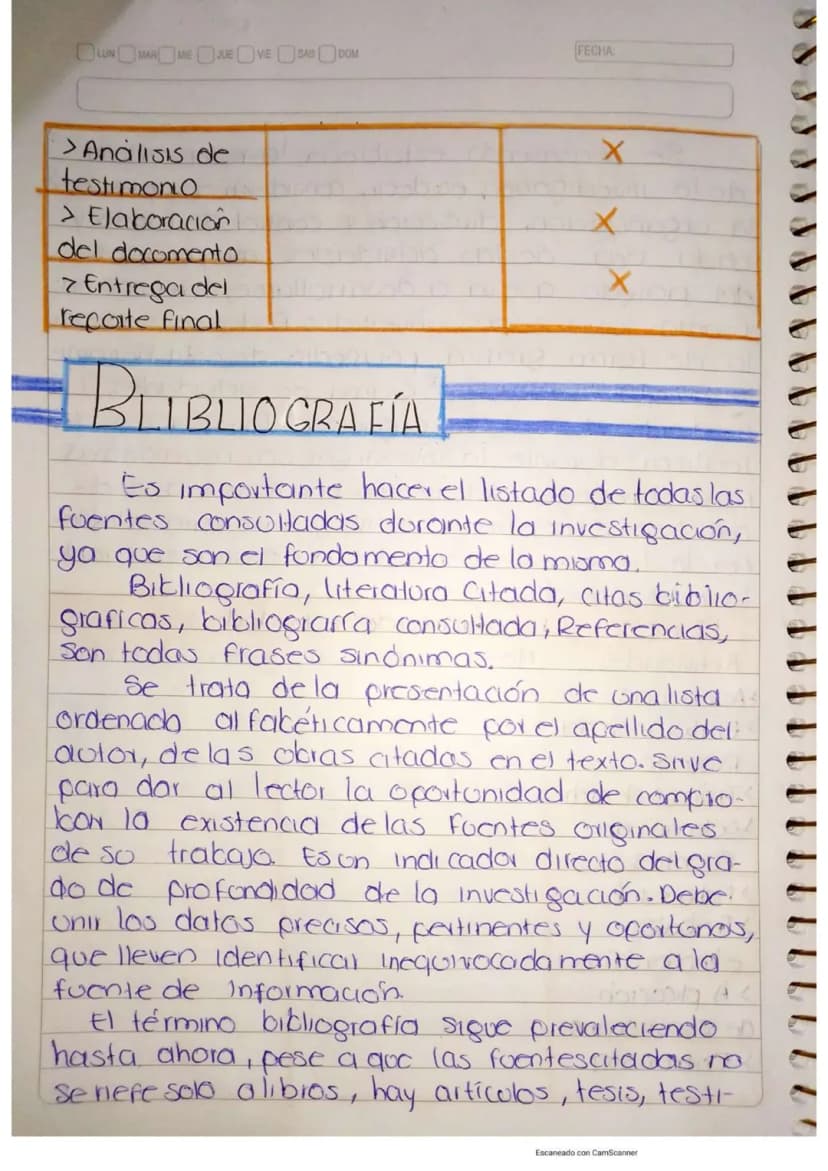 LUN MAR MIE JUE VIE SAB DOM
FECHA:
> Análisis de X
testimonio
> Elaboración X
del documento
> Entrega del X
reporte final
BLIBLIOGRAFÍA
Es importante hacer el listado de todas las
fuentes consultadas durante la investigación,
ya que son el fundamento de la misma.
Bibliografía, literatura citada, citas biblio-
graficas, bibliografía consultada, Referencias,
Son todas frases sinónimas.
Se trata de la presentación de una lista
ordenada alfabéticamente por el apellido del
autor, de las obras citadas en el texto. Sirve
para dar al lector la oportunidad de compro-
bar la existencia de las fuentes originales
de su trabajo. Es un indicador directo del gra-
do de profundidad de la investigación. Debe
unir los datos precisos, pertinentes y oportunos,
que lleven identificar inequivocadamente a la
fuente de información.
El término bibliografía sigue prevaleciendo
hasta ahora, pese a que las fuentes citadas no
se refe solo a libros, hay artículos, tesis, testi-
Escaneado con CamScanner